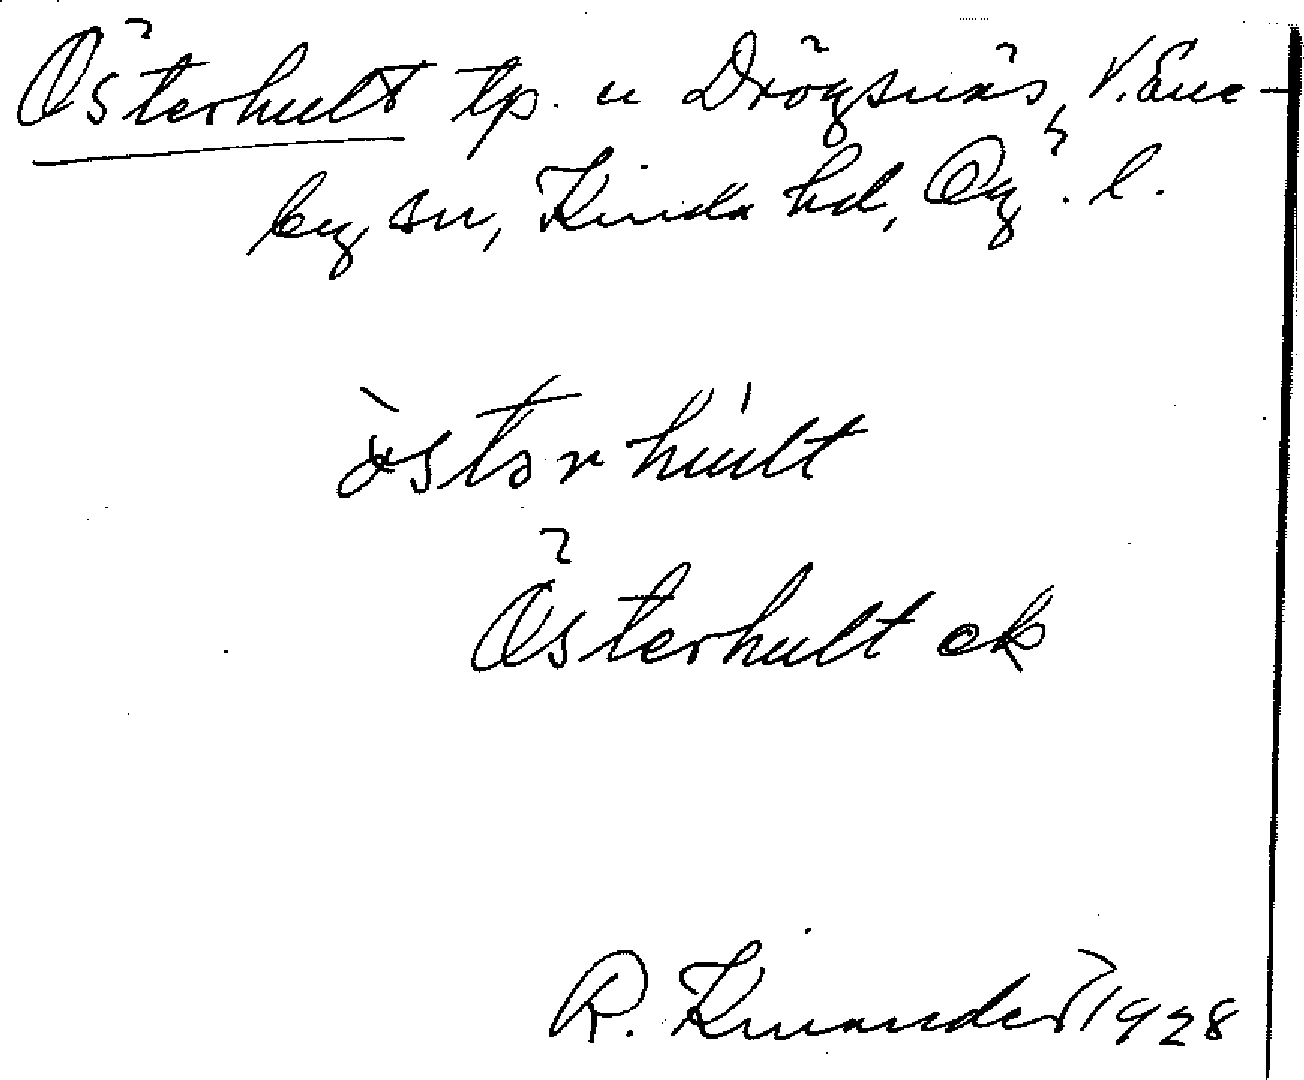 Österhult tp. u Drögsnäs, V. Ene-
by sn, Kinda hd, Ög. l.
östərhult
Österhult ek
R. Kinander 1928